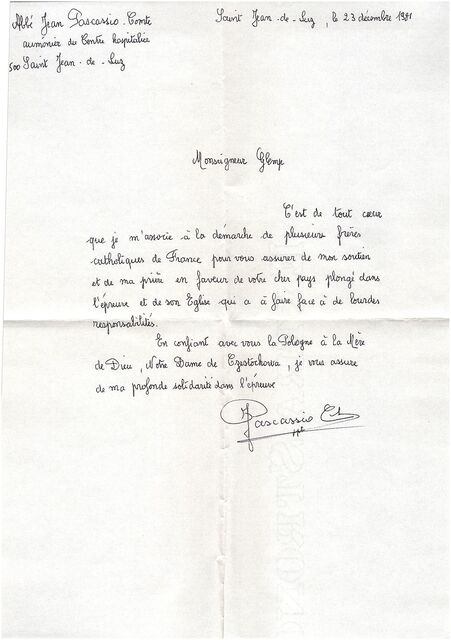 Abbé Jean Pascassio-Comte
Saint Jean-de-Luz, le 23 décembre 1981
aumônier du Centre hospitalier
500 Saint Jean-de-Luz
Monseigneur Glemp
C'est de tout coeur
que je m'associe à la démarche de plusieurs frères
catholiques de France pour vous assurer de mon soutien
et de ma prière en faveur de votre cher pays plongé dans
l'épreuve et de son Église qui a à faire face à de lourdes
responsabilités.
En confiant avec vous la Pologne à la Mère
de Dieu, Notre Dame de Czestochowa, je vous assure
de ma profonde solidarité dans l'épreuve
Pascassio